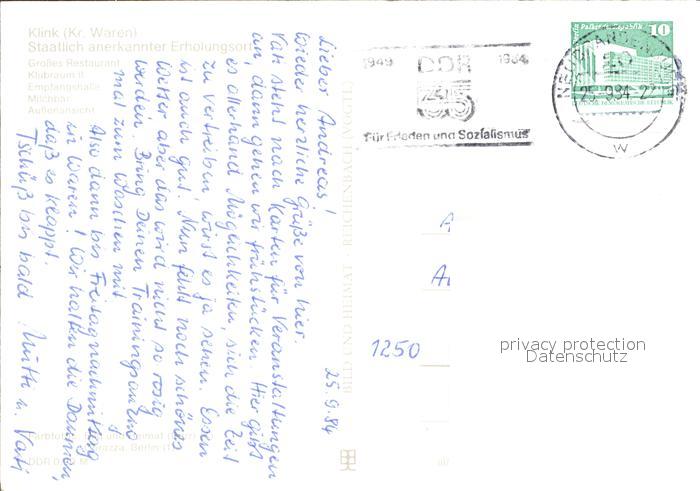 Klink (Kr. Waren)
Staatlich anerkannter Erholungsort
Großes Restaurant
Klubraum II
Empfangshalle
Milchbar
Außenansicht
25.9.84
Lieber Andreas!
Wieder herzliche Grüße von hier.
Vati steht nach Karten für Veranstaltungen
an, dann gehen wir frühstücken. Hier gibt
es allerhand Möglichkeiten, sich die Zeit
zu vertreiben, wirst es ja sehen. Essen
ist auch gut. Nun fehlt noch schönes
Wetter aber das wird nicht so rosig
werden. Bring Deinen Trainingsanzug
mal zum Waschen mit.
Also dann bis Freitagnachmittag
in Waren! Wir halten die Daumen,
daß es klappt.
Tschüß bis bald Mutti u. Vati
BILD UND HEIMAT REICHENBACH (VOGTL)
1949 DDR 1984
35
Für Frieden und Sozialismus
10
25.-9.84.-22
W
A
A
1250
privacy protection
Datenschutz